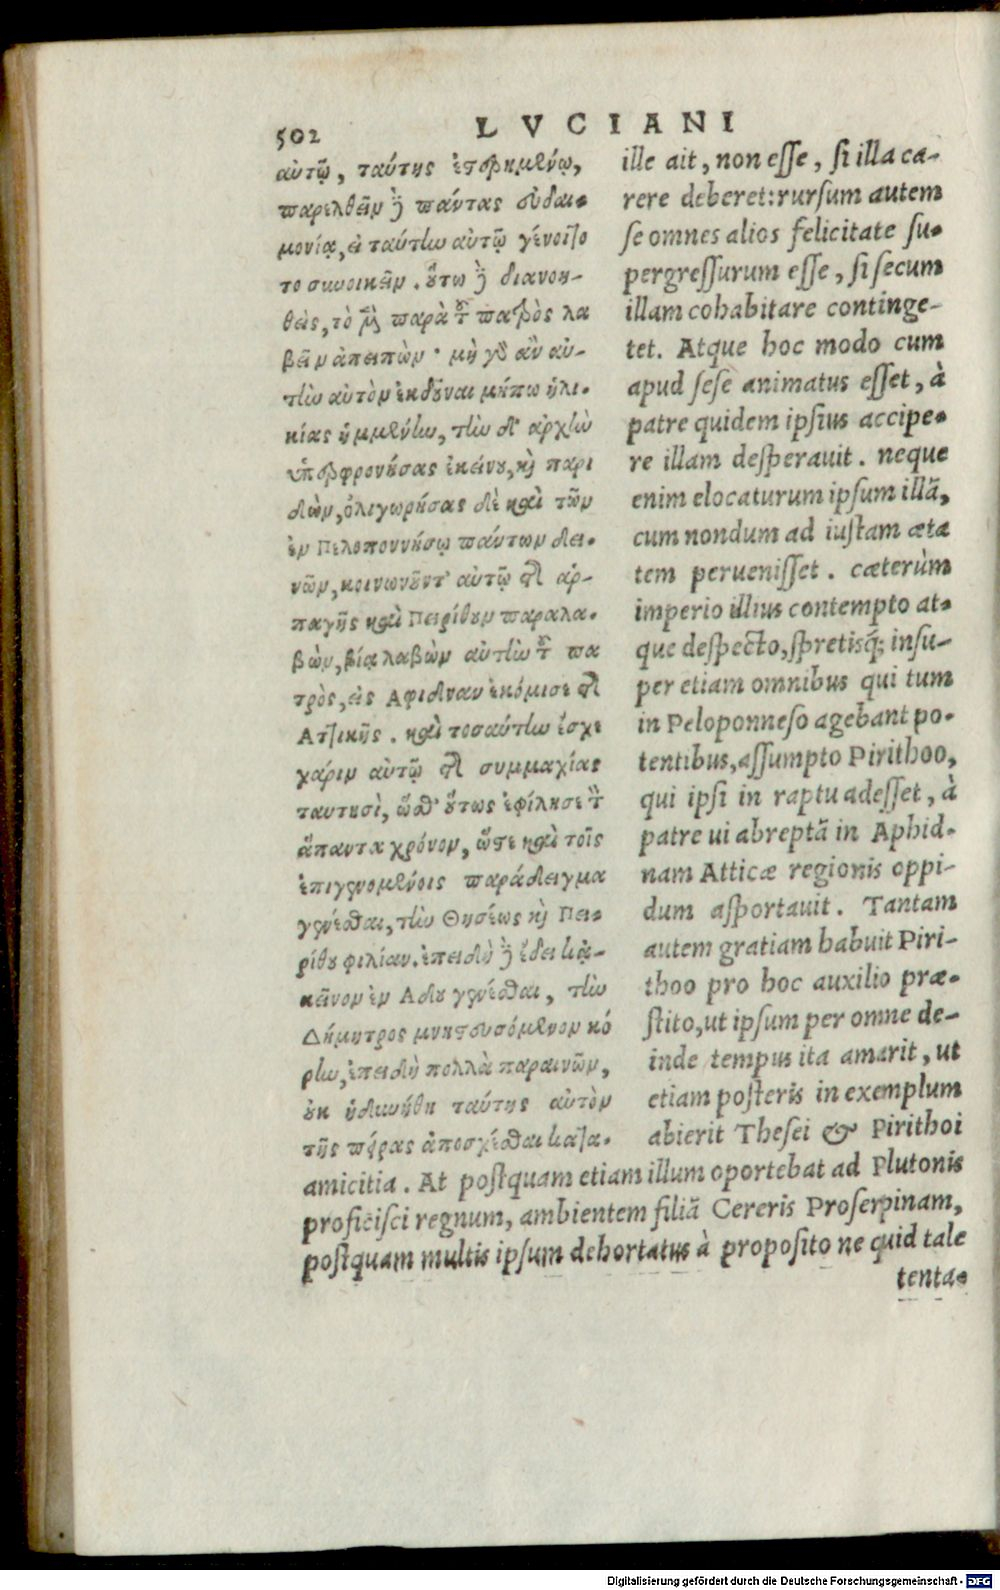 502
LVCIANI
αὐτῷ, ταύτης ἐστερημένῳ,
παρελθεῖν δὲ πάντας εὐδαι-
μονίᾳ, εἰ ταύτην αὐτῷ γένοιτο
το συνοικεῖν. οὕτω δὲ διανοη-
θεὶς, τὸ μὲν παρὰ τοῦ πατρὸς λα
βεῖν ἀπειπὼν· μὴ γὰρ ἂν αὐ-
τὴν αὐτὸν ἐκδοῦναι μήπω ἡλι-
κίας ἡμμένην, τὴν δ' ἀρχὴν
ὑπερφρονήσας ἐκείνου, καὶ παρι
δὼν, ὀλιγωρήσας δὲ καὶ τῶν
ἐν Πελοποννήσῳ πάντων δει-
νῶν, κοινωνοῦντ' αὐτῷ τῆς ἁρ-
παγῆς καὶ Πειρίθουν παραλα-
βὼν, βίᾳ λαβὼν αὐτὴν τοῦ πα
τρὸς, εἰς Αφιδναν ἐκόμισε τῆς
Ατικῆς. καὶ τοσαύτην ἔσχε
χάριν αὐτῷ τῆς συμμαχίας
ταυτησὶ, ὥσθ' οὕτως ἐφίλησε τὸν
ἅπαντα χρόνον, ὥστε καὶ τοῖς
ἐπιγενομένοις παράδειγμα
γενέσθαι, τὴν Θησέως καὶ Πει-
ρίθου φιλίαν. ἐπειδὴ δὲ ἔδει κἀ-
κεῖνον ἐν Αδου γενέσθαι, τὴν
Δήμητρος μνηστευσόμενον κό
ρην, ἐπειδὴ πολλὰ παραινῶν,
οὐκ ἠδυνήθη ταύτης αὐτὸν
τῆς πείρας ἀποσχέσθαι κατα-
ille ait, non esse, si illa ca-
rere deberet: rursum autem
se omnes alios felicitate su-
pergressurum esse, si secum
illam cohabitare continge-
tet. Atque hoc modo cum
apud sese animatus esset, à
patre quidem ipsius accipe-
re illam desperauit. neque
enim elocaturum ipsum illã,
cum nondum ad iustam æta
tem peruenisset. cæterùm
imperio illius contempto at-
que despecto, spretisq́; insu-
per etiam omnibus qui tum
in Peloponneso agebant po-
tentibus, assumpto Pirithoo,
qui ipsi in raptu adesset, à
patre ui abreptã in Aphid-
nam Atticæ regionis oppi-
dum asportauit. Tantam
autem gratiam habuit Piri-
thoo pro hoc auxilio præ-
stito, ut ipsum per omne de-
inde tempus ita amarit, ut
etiam posteris in exemplum
abierit Thesei & Pirithoi
amicitia. At postquam etiam illum oportebat ad Plutonis
proficisci regnum, ambientem filiã Cereris Proserpinam,
postquam multis ipsum dehortatus à proposito ne quid tale
tenta-
Digitalisierung gefördert durch die Deutsche Forschungsgemeinschaft - DFG